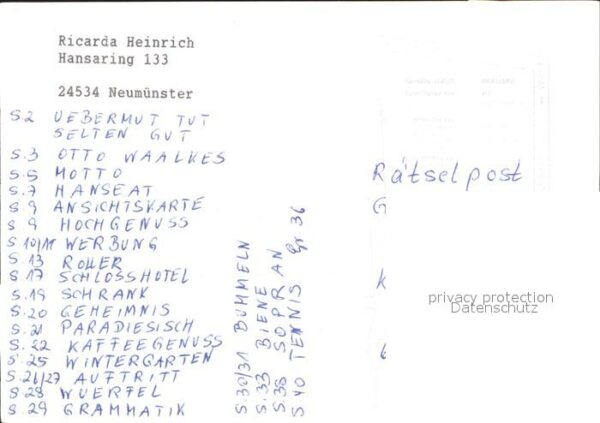 Ricarda Heinrich
Hansaring 133
24534 Neumünster
S.2 UEBERMUT TUT
SELTEN GUT
S.3 OTTO WAALKES
S.5 MOTTO
S.7 HANSEAT
S 9 ANSICHTSKARTE
S 9 HOCHGENUSS
S 10/11 WERBUNG
S.13 ROLLER
S 17 SCHLOSSHOTEL
S.19 SCHRANK
S.20 GEHEIMNIS
S.21 PARADIESISCH
S.22 KAFFEEGENUSS
S.25 WINTERGARTEN
S.26/27 AUFTRITT
S.28 WUERFEL
S.29 GRAMMATIK
S.30/31 BUMMELN
S.33 BIENE
S.38 SOPRAN
S 40 TENNIS Gr 36
Rätselpost
G
K
privacy protection
Datenschutz